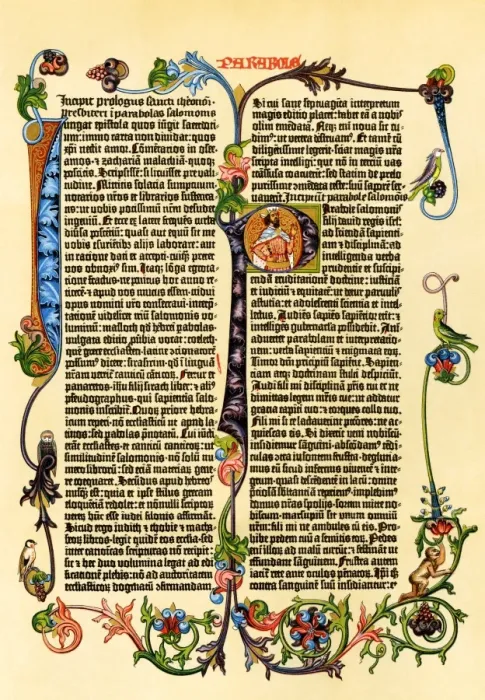 PARABOLE
Incipit prologus sancti iheronimi
presbiteri i parabolas salomonis
Iungat epistola quos iūgit sacerdotiū:
immo carta non dividat: quos
xp̄i nectit amor. Cōmētarios in osee
amos ⁊ zachariā malachiā quoqȝ
poscitis. Scripsissē: si licuisset pre vali-
tudine. Mittitis solacia sumptuum.
notarios nr̄os ⁊ librarios sustenta-
tis: ut vobis potissimū nr̄m desudet
ingeniū. Et ecce ex latere frequēs turba
diūsa poscētiū: quasi aut equū sit me
vobis esuriētibȝ alijs laborare: aut
in ratione dati et accepti· cuiqȝ preter
vos obnoxiꝰ sim. Itaqȝ lōga egrota-
tione fractus· ne penitus hoc anno re-
ticerē· ⁊ apud vos mutus essem· tridui
opus nomini vr̄o consecravi· interp̄-
tationē videlicet triū salomonis vo-
luminū: masloth qd̄ hebrei pabolas·
vulgata editio pūbia vocat: coeleth·
quē grece ecclesiasten· latine ɔcionatorē
possumꝰ dicere: sirasirim· qd̄ ī linguā
nr̄am vertit canticū cāticoȝ. Fertur et
panaretos· ihu filij sirach liber: ⁊ aliꝰ
pseudographus· qui sapientia salo-
monis inscribit̄. Quoȝ priore hebra-
icum reperi· nō ecclīasticū ut apud la-
tinos: sed pabolas p̄notatū. Cui iūcti
erāt ecclesiastes· et canticū canticoȝ: ut
similitudinē salomonis· nō solū nu-
mero librorū: sed etiā materiaȝ gene-
re coequaret. Secūdus apud hebreos
nusq̄ est: quia et ipse stilus grecam
eloquētiā redolet: et nōnulli scriptoȝ
veteȝ hūc esse iudei filonis affirmāt.
Sicut ergo iudith ⁊ thobie ⁊ macha-
beoȝ libros· legit quidē eos ecclīa· sed
inter canonicas scripturas nō recipit:
sic ⁊ hec duo volumina legat ad edi-
ficationē plebis: nō ad auctoritatem
ecclīasticoȝ dogmatū ɔfirmandam.
Si cui sane septuaginta interpretum
magis editio placet: habet eā a nobis
olim emēdatā. Neqȝ eni nova sic cu-
dimꝰ: ut vetera destruamꝰ. Et tamē cū
diligētissime legerit· sciat magis nr̄a
scripta intelligi: que nō in tertiū vas
trāsfusa coacuerīt: sed statim de prelo
purissime ɔmēdata teste: suū saporē ser-
vaverīt. Incipiunt parabole salomōis
Parabole salomonis
filij david regis isrl̄:
ad sciendā sapienti-
am ⁊ disciplinā: ad
intelligenda verba
prudentie et suscipi-
endā eruditationē doctrine: iusticiā
et iudiciū ⁊ equitatē: ut detur parvulis
astutia: et adolescenti sciencia et intel-
lectus. Audiēs sapiēs sapiētior erit: ⁊
intelligēs gubernacla possidebit. Ani-
advertet parabolam et interpretatio-
nem: verba sapientiū ⁊ enigmata eoȝ.
Timor dn̄i principiū sapiētie. Sapien-
tiam atqȝ doctrinam stulti despiciūt.
Audi fili mi disciplinā pr̄is tui et ne
dimittas legem mr̄is tue: ut addatur
gracia capiti tuo: ⁊ torques collo tuo.
Fili mi si te lactaverint p̄ctores: ne ac-
quiescas eis. Si dixerīt veni nobiscū·
insidiemur sāguini· abscōdamꝰ tēdi-
culas cōtra insontem frustra· degluci-
amus eū sicud infernus viventē ⁊ inte-
grum· quasi descēdentē in lacū: omnē
p̄ciosā sb̄stanciā reperiemꝰ· implebimꝰ
domus nr̄as spolijs· sortem mitte no-
biscum· marsupiū sit unum omniū
nr̄m: fili mi ne ambules cū eis. Pro-
hibe pedem tuū a semitis eoȝ. Pedes
eni illoȝ ad malū currūt: ⁊ festināt ut
effundant sāguinem. Frustra autem
iacit̄ rete ante oculos pēnatoȝ. Ip̄i qȝ
contra sanguinē suū insidiantur: ⁊